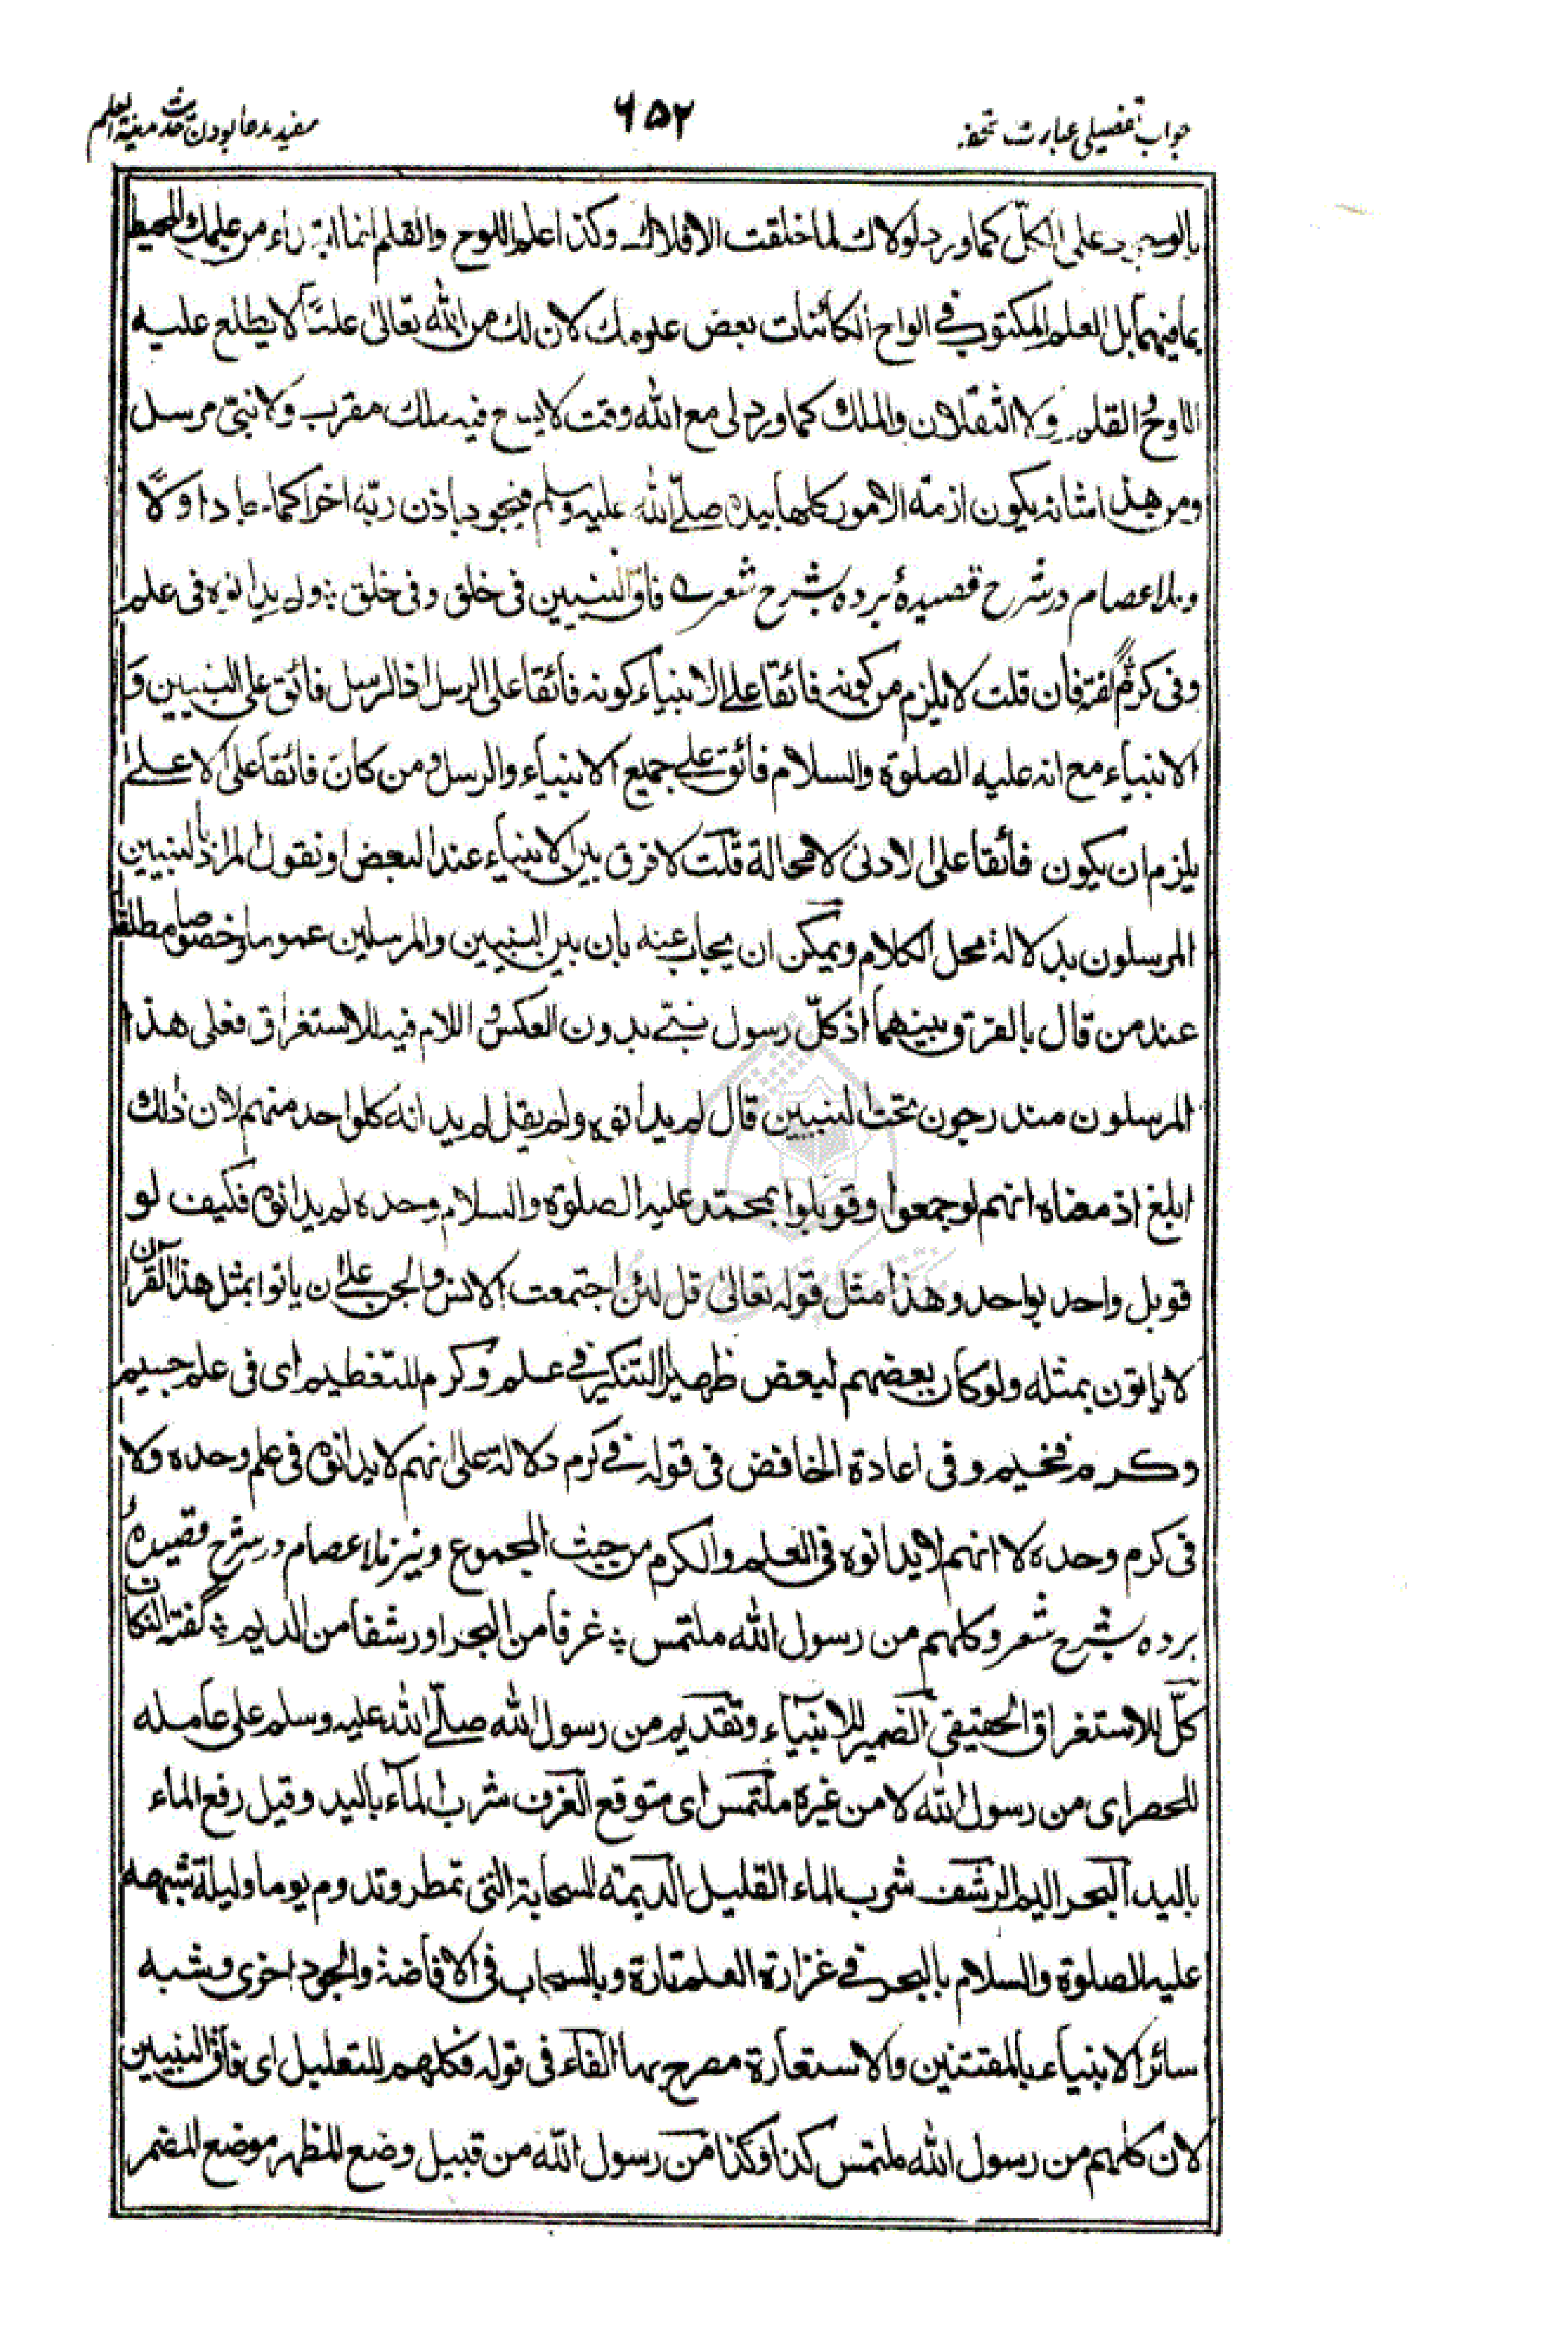 جواب تفصیلی عبارت تحفہ
۶۵۲
مفید مدعا بودن حدیث مدینة العلم
بالوجود على الكلّ كما ورد لولاك لما خلقت الافلاك وكذا علم اللوح والقلم انما ابتداء من علمك المحيط
بما فيهما بل العلم المكتوب في الواح الكائنات بعض علومك لان لك من الله تعالىٰ علمًا لا يطلع عليه
اللوح القلم ولا الثقلان والملك كما ورد لى مع الله وقت لا يسع فيه ملك مقرب ولا نبيّ مرسل
ومن هذا شانه يكون ازمة الامور كلها بيده صلّے الله عليه وسلم فيجود باذن ربّه اخرا كما جاد اولًا
وملا عصام در شرح قصیدهٔ برده بشرح شعر فاق النبيين فى خلق وفى خلق ؛ ولم يدانوه فى علم
وفى كرم گفته فان قلت لا يلزم من كونه فائقا على الانبياء كونه فائقا على الرسل اذ الرسل فائق على النبيين و
الانبياء مع انه عليه الصلوة والسلام فائق علے جميع الانبياء والرسل ومن كان فائقا على الاعلے
يلزم ان يكون فائقا على الادنى لا محالة قلت لا فرق بين الانبياء عند البعض او نقول المراد بالنبيين
المرسلون بدلالة محل الكلام ويمكن ان يجاب عنه بان بين النبيين والمرسلين عموما وخصوصا مطلقا
عند من قال بالفرق بينهما اذ كلّ رسول نبيّ بدون العكس و اللام فيه للاستغراق فعلى هذا
المرسلون مندرجون تحت النبيين قال لم يدانوه ولم يقل لم يدانه كلواحد منهم لان ذلك
ابلغ اذ معناه انهم لو جمعوا وقوبلوا بمحمّد عليه الصلوة والسلام وحده لم يدانوه فكيف لو
قوبل واحد بواحد وهذا مثل قوله تعالىٰ قل لئن اجتمعت الانس والجن علے ان ياتوا بمثل هذا القرآن
لا ياتون بمثله ولو كان بعضهم لبعض ظهيرا التنكير فے علم وكرم للتعظيم اى فى علم جسيم
وكرم فخيم وفى اعادة الخافض فى قوله فے كرم دلالة على انهم لا يدانوه فى علم وحده ولا
فى كرم وحده لا انهم لا يدانوه فى العلم والكرم من حيث المجموع ونیز ملا عصام در شرح قصیدهٔ
برده بشرح شعر وكلهم من رسول الله ملتمس ؛ غرفا من البحر او رشفا من الديم ؛ گفته الفكان
كلّ للاستغراق الحقيقي الضمير للانبياء وتقديم من رسول الله صلّے الله عليه وسلم على عامله
للحصر اى من رسول الله لا من غيره ملتمس اى متوقع الغرف شرب الماء باليد وقيل رفع الماء
باليد البحر اليم الرشف شرب الماء القليل الديمة السحابة التى تمطر وتدوم يوما وليلة شبهه
عليه الصلوة والسلام بالبحر فے غزارة العلم تارة وبالسحاب فى الافاضة والجود اخرى وشبه
سائر الانبياء بالمقتنين والاستعارة مصرح بها الفاء فى قوله فكلهم للتعليل اى فاق النبيين
لان كلهم من رسول الله ملتمس كذا وكذا من رسول الله من قبيل وضع المظهر موضع المضمر